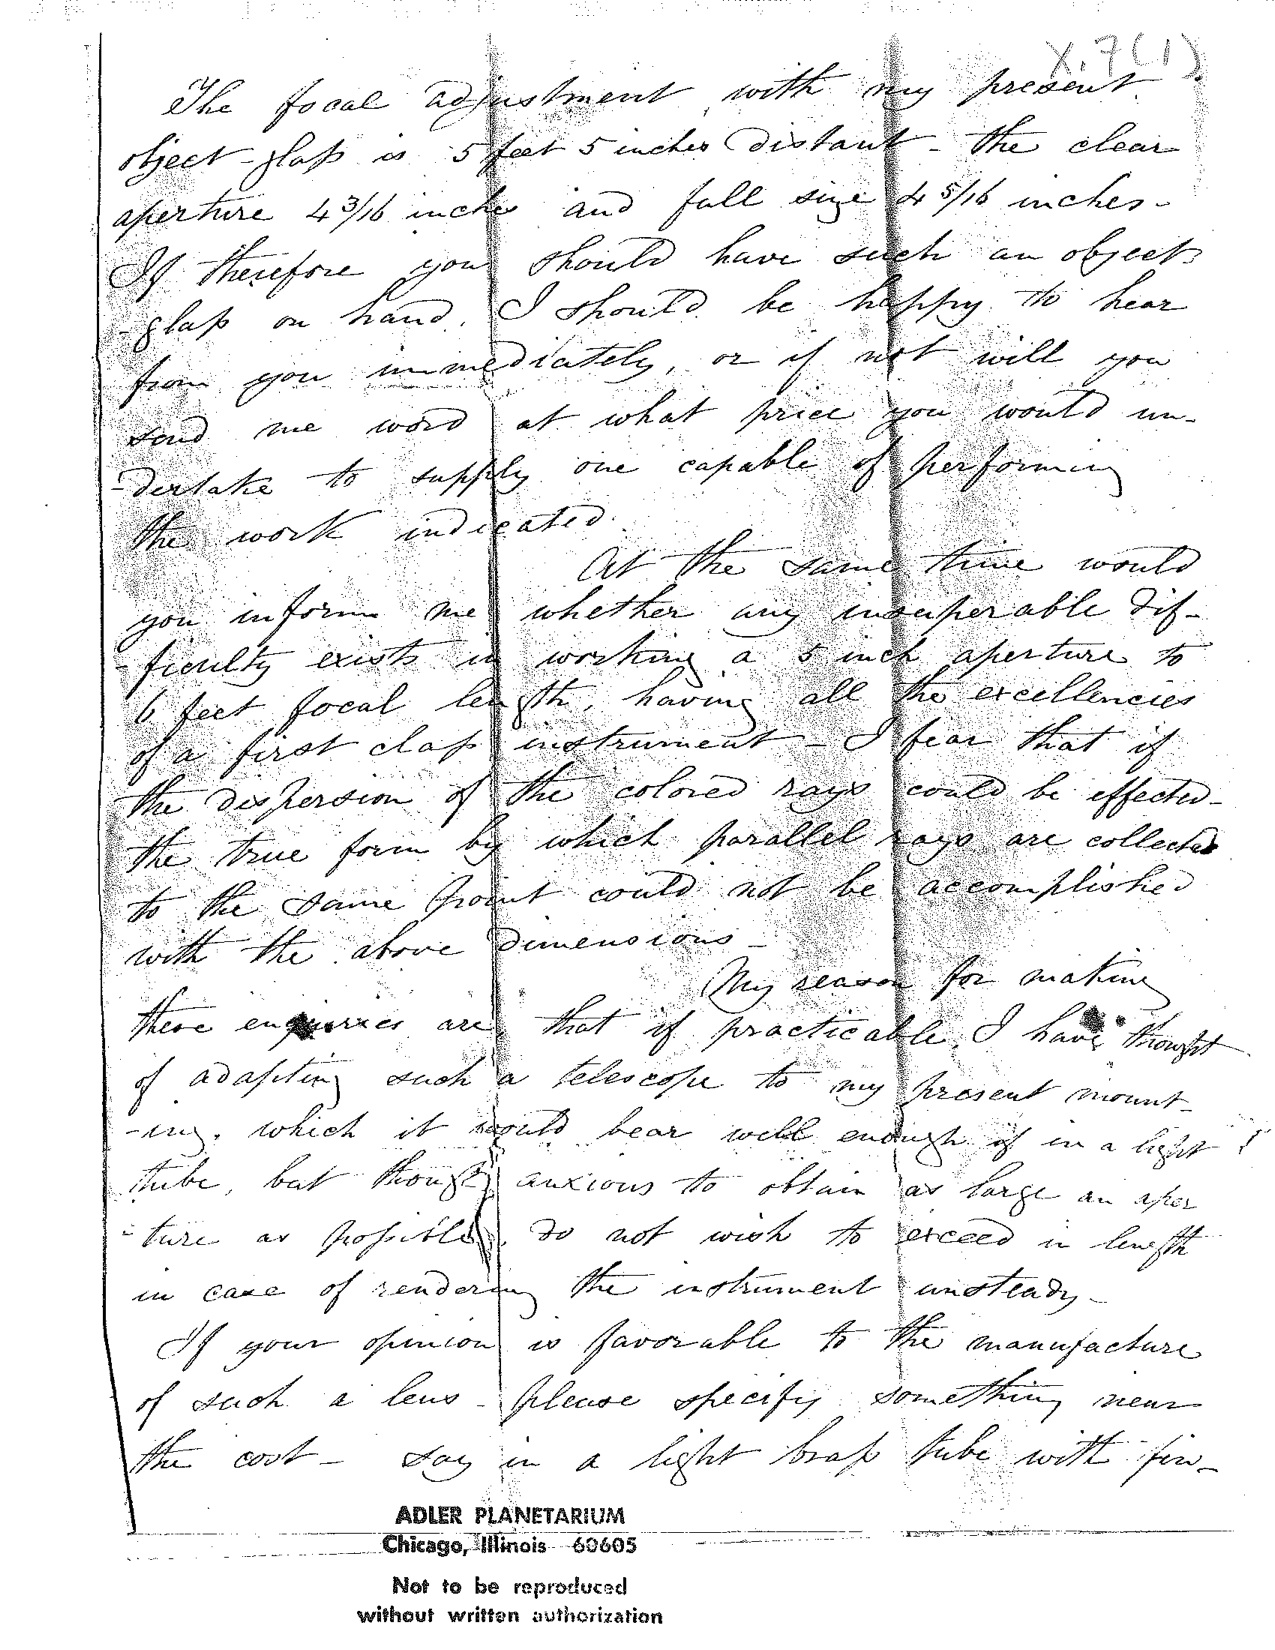 X.7(1)
The focal adjustment with my present
object-glass is 5 feet 5 inches distant - the clear
aperture 4 3/16 inches and full size 4 5/16 inches -
If therefore you should have such an object
-glass on hand, I should be happy to hear
from you immediately, or if not will you
send me word at what price you would un-
-dertake to supply one capable of performing
the work indicated.
At the same time would
you inform me whether any insuperable dif-
-ficulty exists in working a 5 inch aperture to
6 feet focal length, having all the excellencies
of a first class instrument - I fear that if
the dispersion of the colored rays could be effected -
the true form by which parallel rays are collected
to the same point could not be accomplished
with the above dimensions -
My reason for making
these enquiries are, that if practicable, I have thought
of adapting such a telescope to my present mount-
-ing, which it would bear well enough if in a light
tube, but though anxious to obtain as large an aper
-ture as possible, do not wish to exceed in length
in case of rendering the instrument unsteady -
If your opinion is favorable to the manufacture
of such a lens - please specify something near
the cost - say in a light brass tube with fin-
ADLER PLANETARIUM
Chicago, Illinois 60605
Not to be reproduced
without written authorization